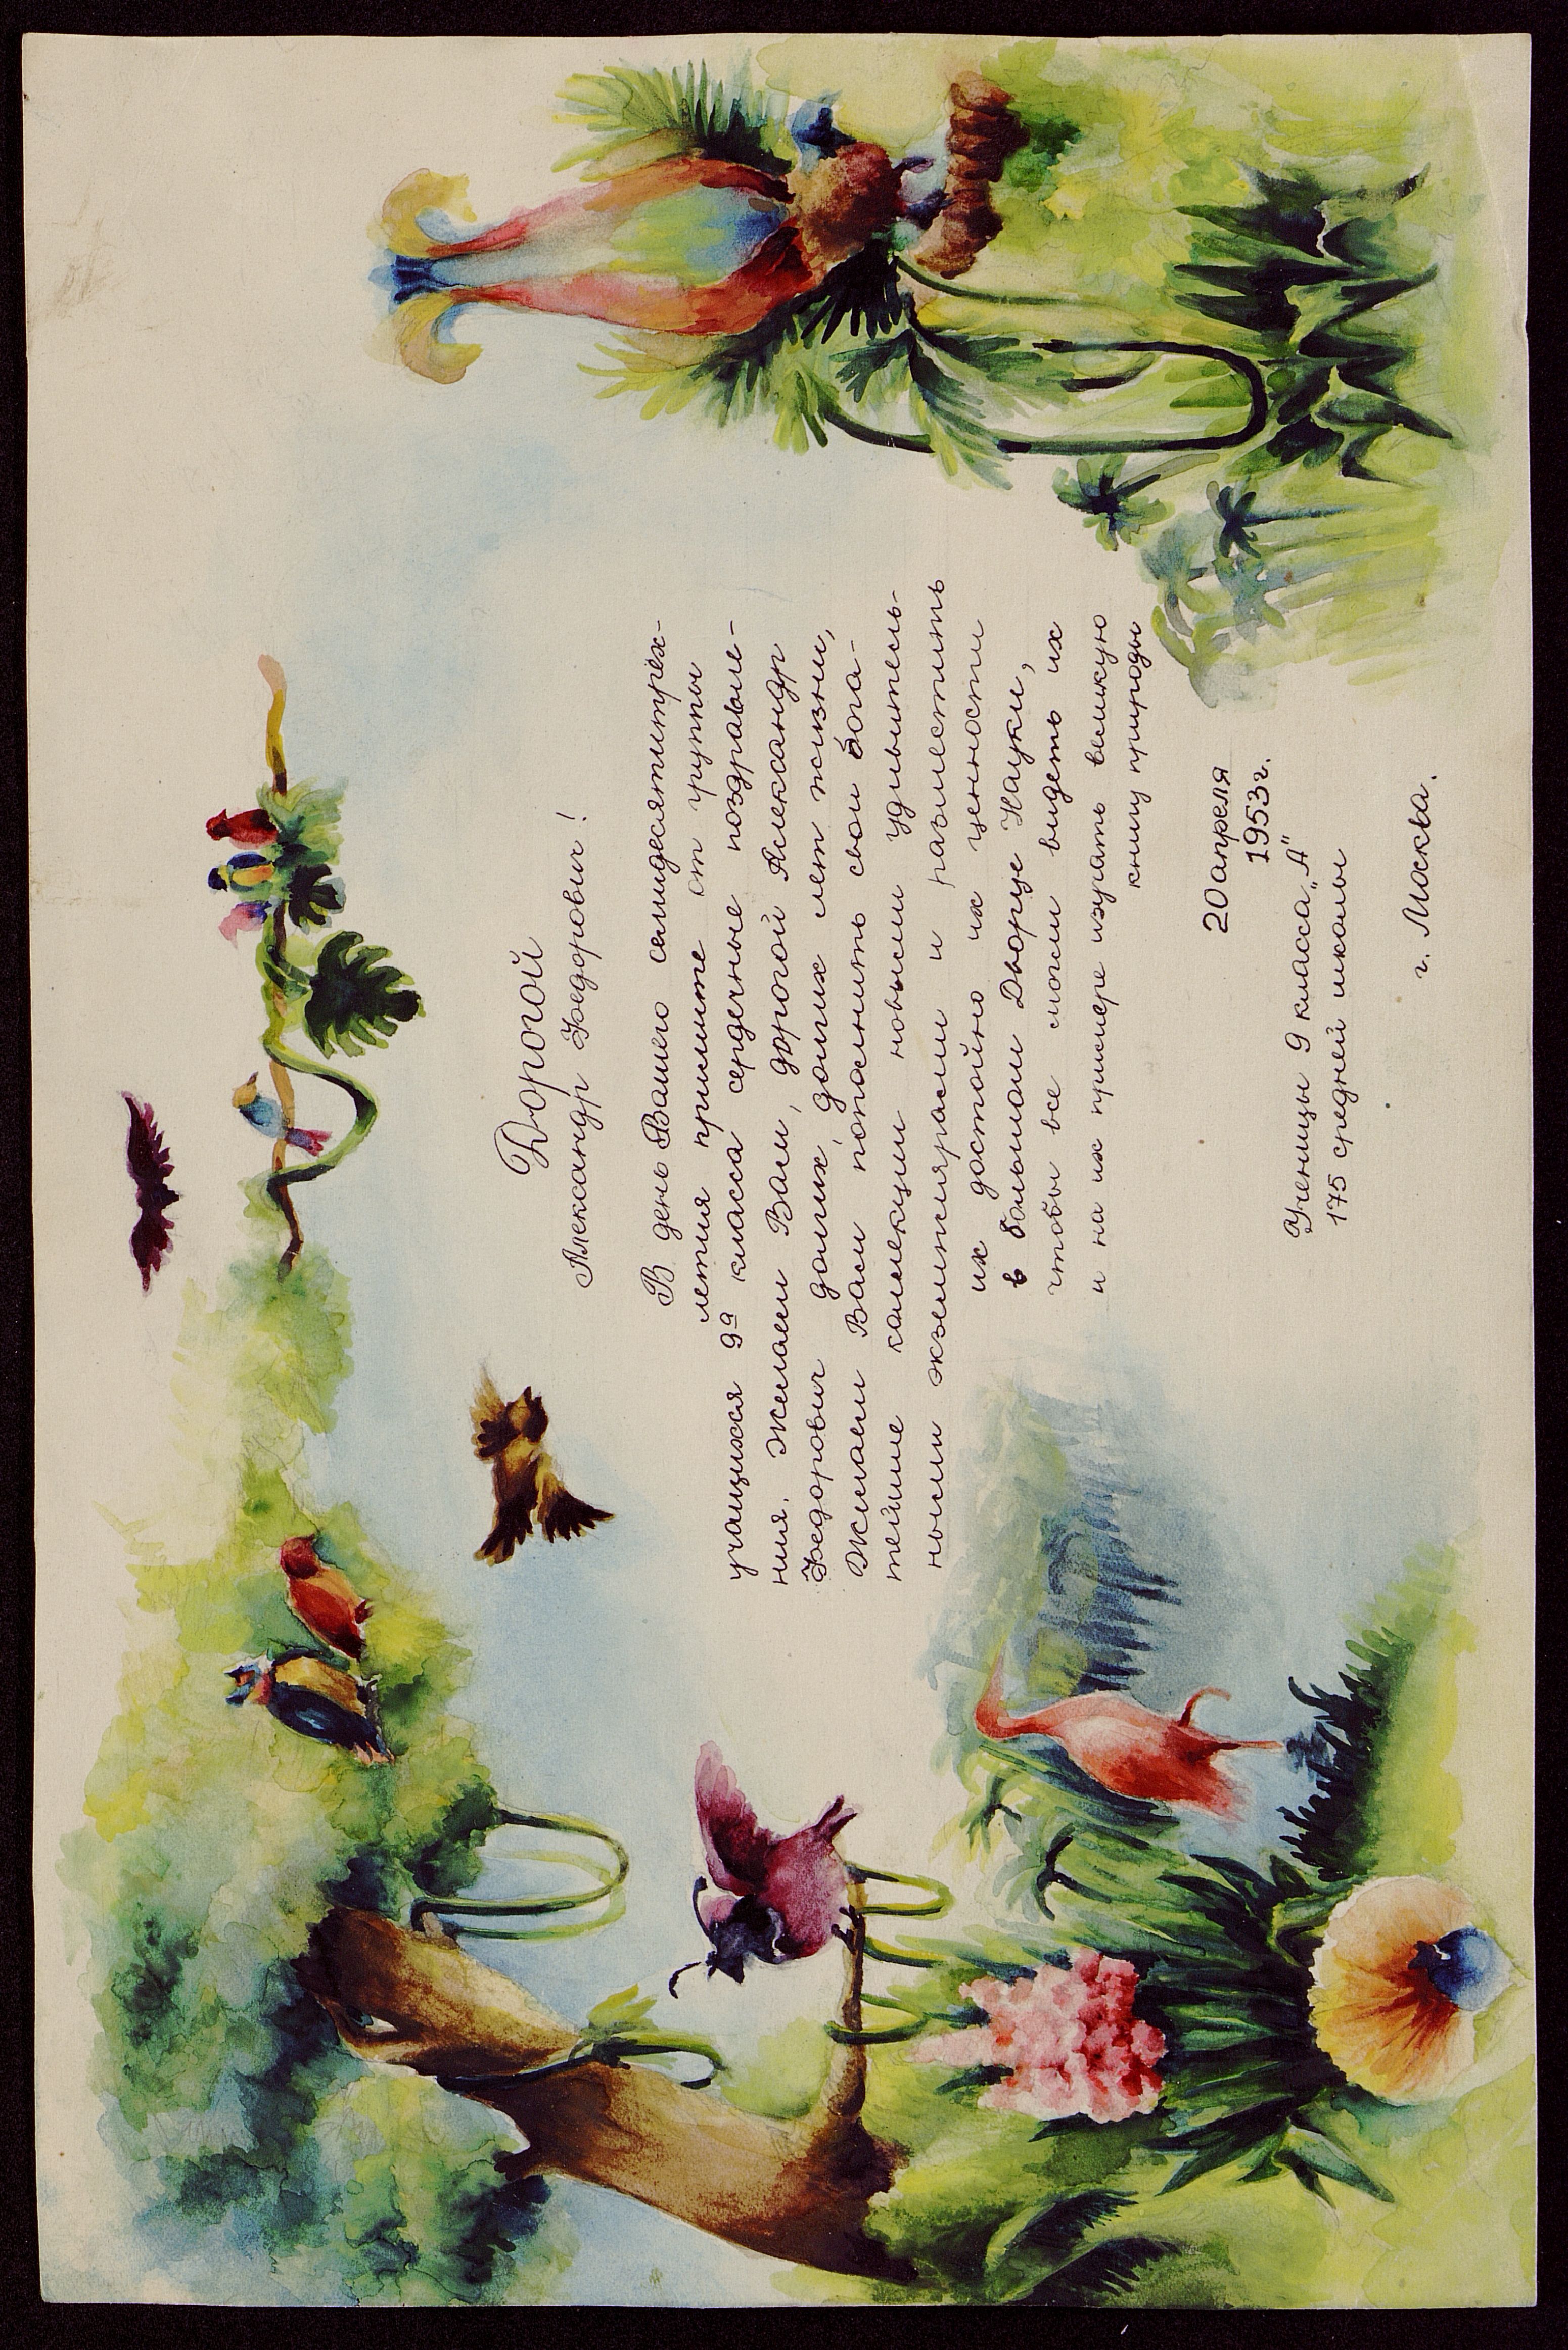 Дорогой
Александр Федорович!
В день Вашего семидесятитрех-
летия примите от группы
учащихся 9а класса сердечные поздравле-
ния. Желаем Вам, дорогой Александр
Федорович долгих, долгих лет жизни,
Желаем Вам пополнить свои бога-
тейшие коллекции новыми удивитель-
ными экземплярами и разместить
их достойно их ценности
в большом Дворце Науки,
чтобы все могли видеть их
и на их примере изучать великую
книгу природы
20 апреля
1953г.
Ученицы 9 класса „А"
175 средней школы
г. Москва.